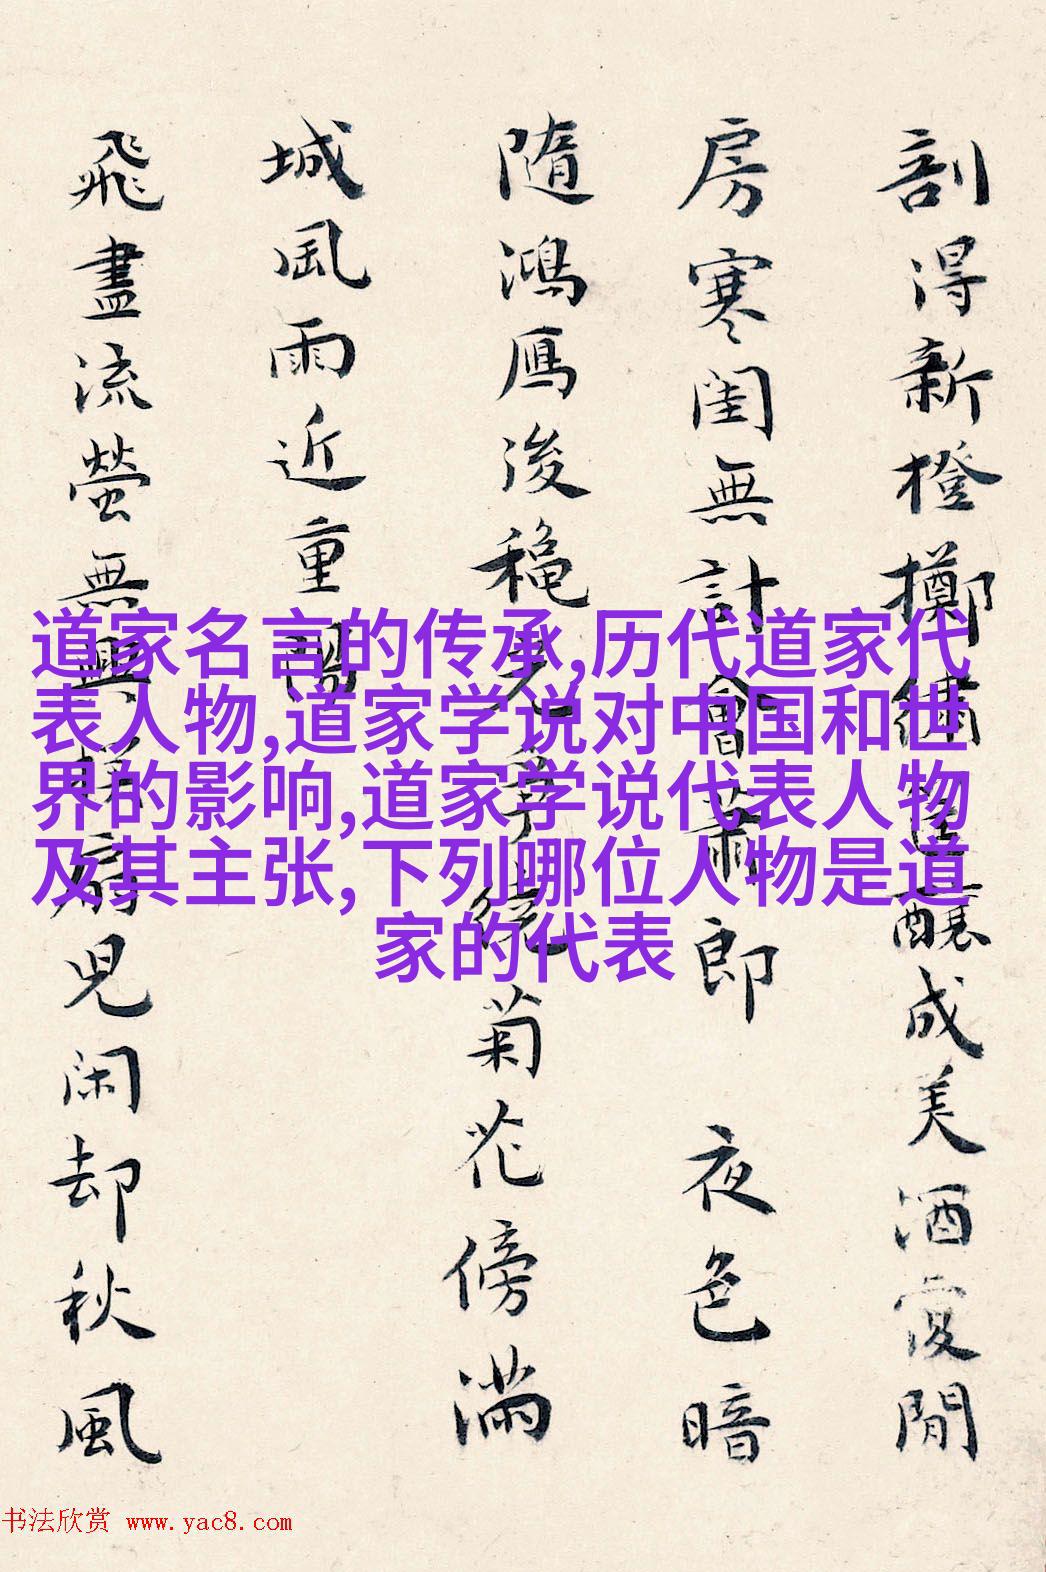 剖得新橙擲繡筐釀成美酒復閒
房寒閨無計會蕭郎 夜色暗
隨鴻雁後穐光爭繞菊花傍滿
城風雨近重陽
飛盡流螢無興撲扇兒閑却秋風
道家名言的传承,历代道家代
表人物,道家学说对中国和世
界的影响,道家学说代表人物
及其主张,下列哪位人物是道
家的代表
书法欣赏 www.yac8.com